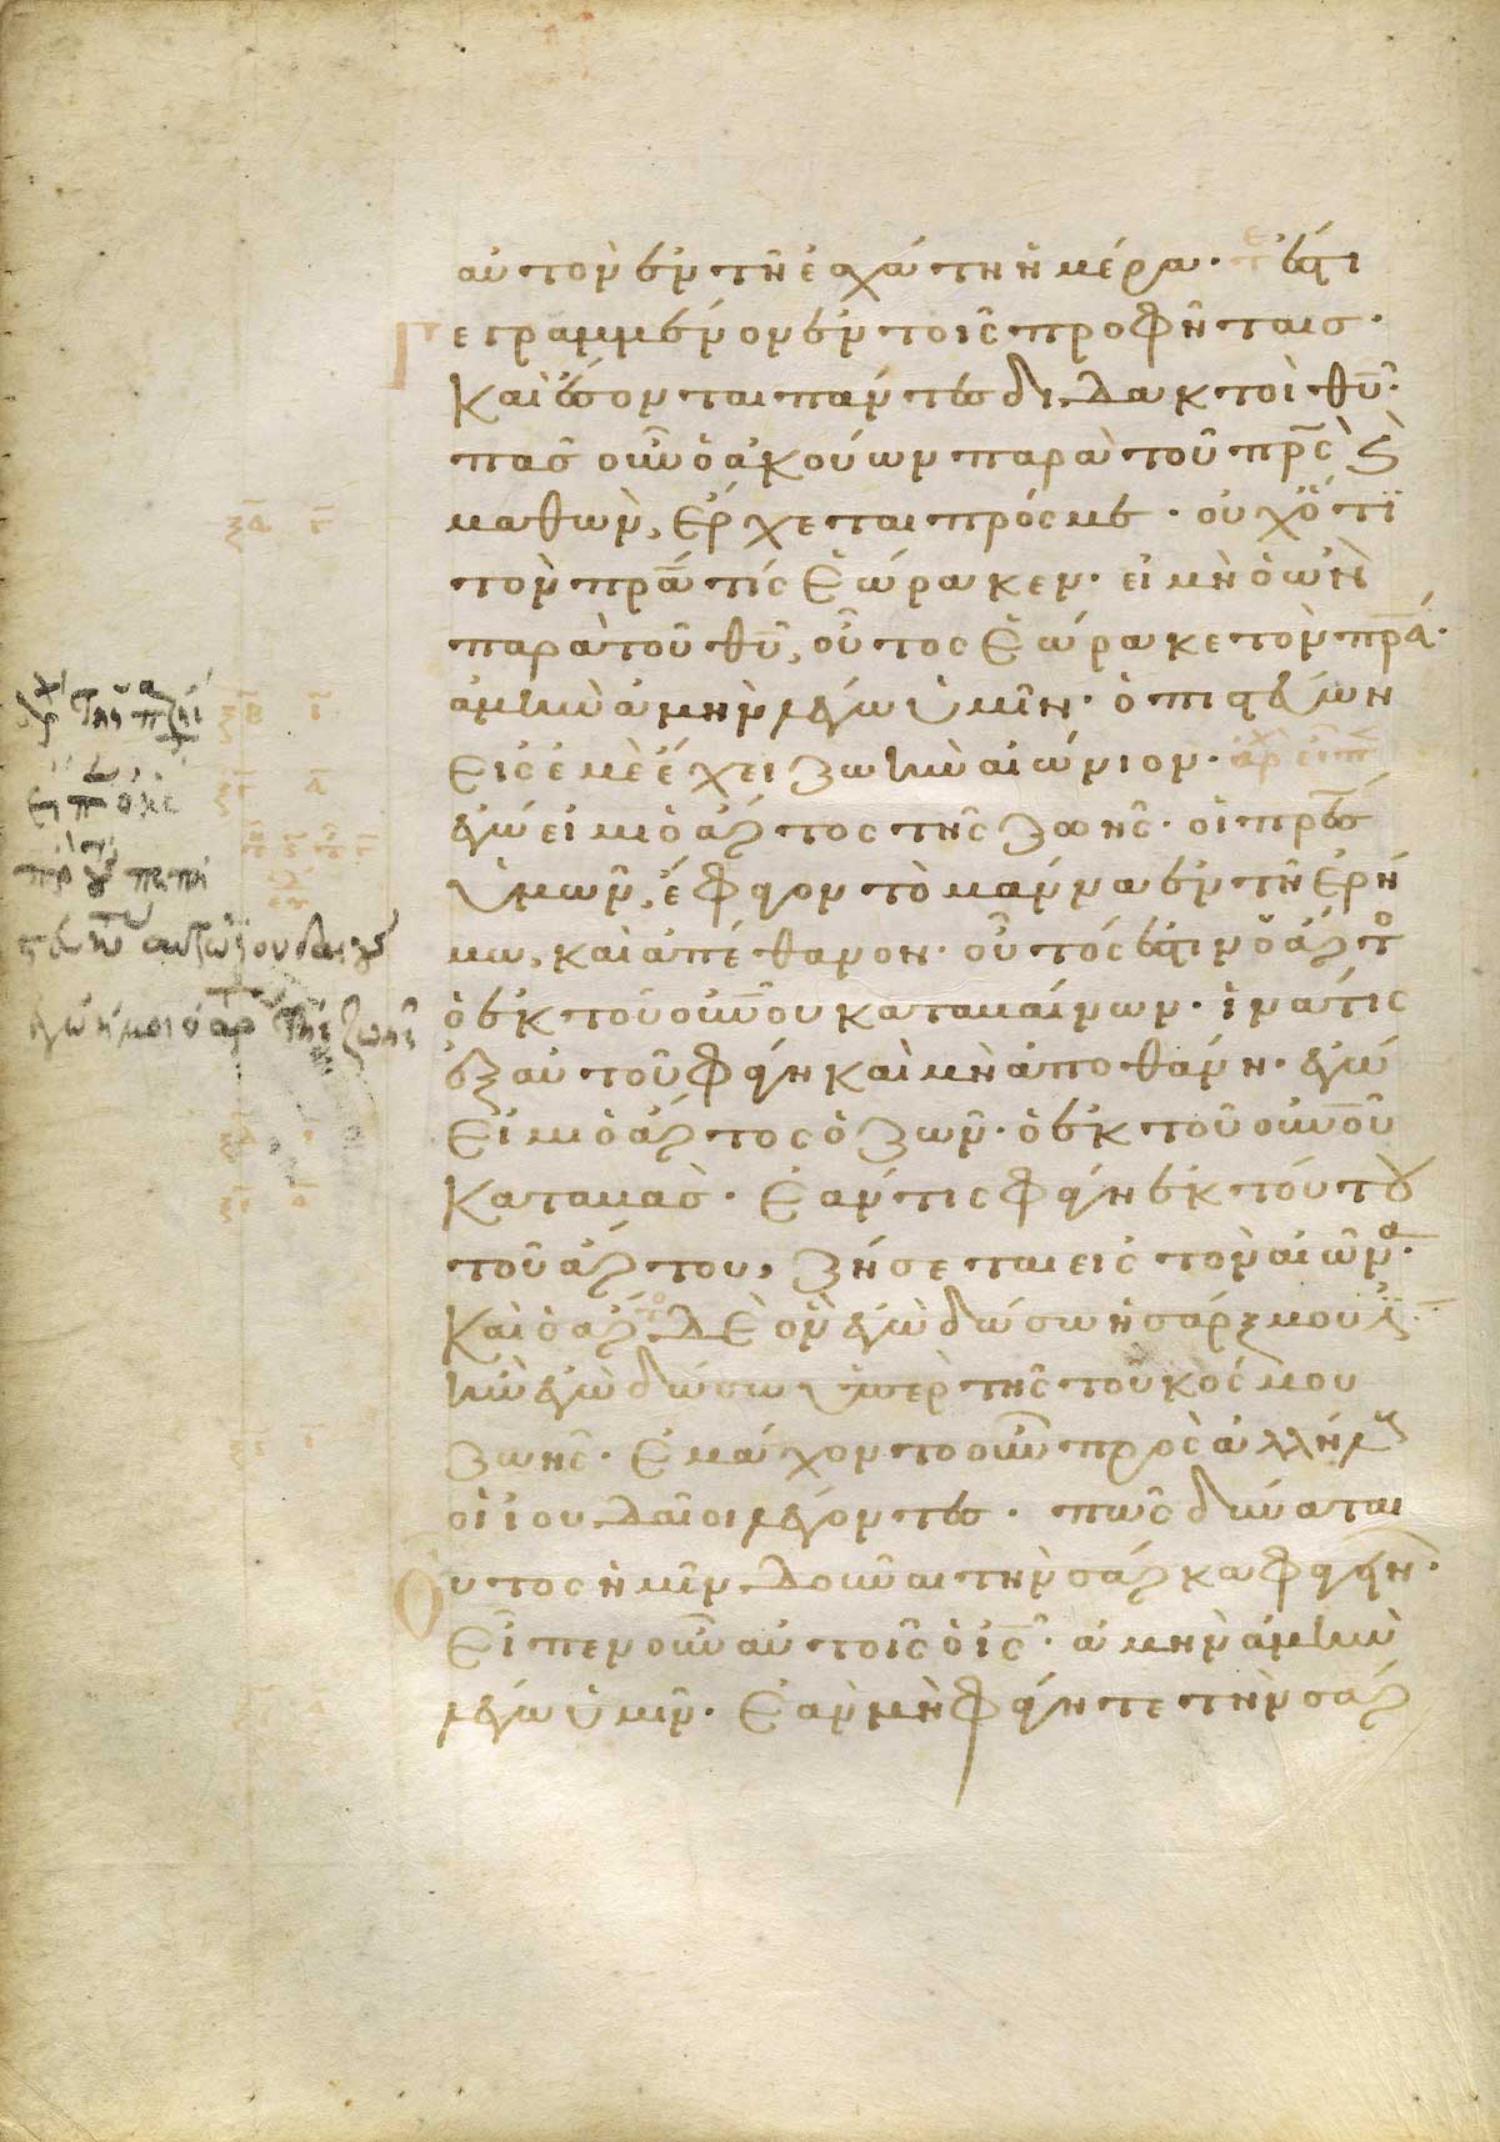 αὐτὸν ἐν τῆ ἐσχάτη ἡμέρα· ἔστι
γεγραμμένον ἐν τοῖς προφήταις·
Καὶ ἔσονται πάντες διδακτοὶ θῦ·
πᾶς οὖν ὁ ἀκούων παρὰ τοῦ πρς ϗ
μαθὼν, ἔρχεται πρός με· οὐχ ὅτι
τὸν πρα τίς ἑώρακεν· εἰ μὴ ὁ ὢν
παρὰ τοῦ θῦ, οὗτος ἑώρακε τὸν πρα·
ἀμὴν ἀμὴν λέγω ὑμῖν· ὁ πιστεύων
εἰς ἐμὲ ἔχει ζωὴν αἰώνιον·
ἐγώ εἰμι ὁ ἄρτος τῆς ζωῆς· οἱ πρες
ὑμῶν, ἔφαγον τὸ μάννα ἐν τῆ ἐρή
μω, καὶ ἀπέθανον· οὗτός ἐστιν ὁ ἄρτο
ὁ ἐκ τοῦ οὐνοῦ καταβαίνων· ἵνα τίς
ἐξ αὐτοῦ φάγη καὶ μὴ ἀποθάνη· ἐγώ
εἰμι ὁ ἄρτος ὁ ζῶν· ὁ ἐκ τοῦ οὐνοῦ
Καταβὰς· ἐάν τις φάγη ἐκ τούτου
τοῦ ἄρτου, ζήσεται εἰς τὸν αἰῶνα·
Καὶ ὁ ἄρτο δὲ ὃν ἐγὼ δώσω ἡ σάρξ μου ἐ
ἣν ἐγὼ δώσω ὑπὲρ τῆς τοῦ κόσμου
ζωῆς· ἐμάχοντο οὖν πρὸς ἀλλήλους
οἱ ἰουδαῖοι λέγοντες· πῶς δύναται
οὗτος ἡμῖν δοῦναι τὴν σάρκα φαγεῖν·
εἶπεν οὖν αὐτοῖς ὁ ις· ἀμὴν ἀμὴν
λέγω ὑμῖν· ἐὰν μὴ φάγητε τὴν σάρ